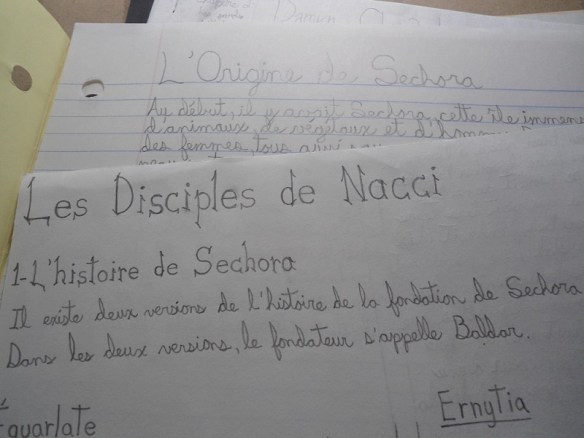 L'Origine de Sechora
Au début, il y avait Sechora, cette île immense
d'animaux, de végétaux et
des femmes, tous
Les Disciples de Nacci
1-L'histoire de Sechora
Il existe deux versions de l'histoire de la fondation de Sechora.
Dans les deux versions, le fondateur s'appelle Baldor.
Équarlate
Ernytia